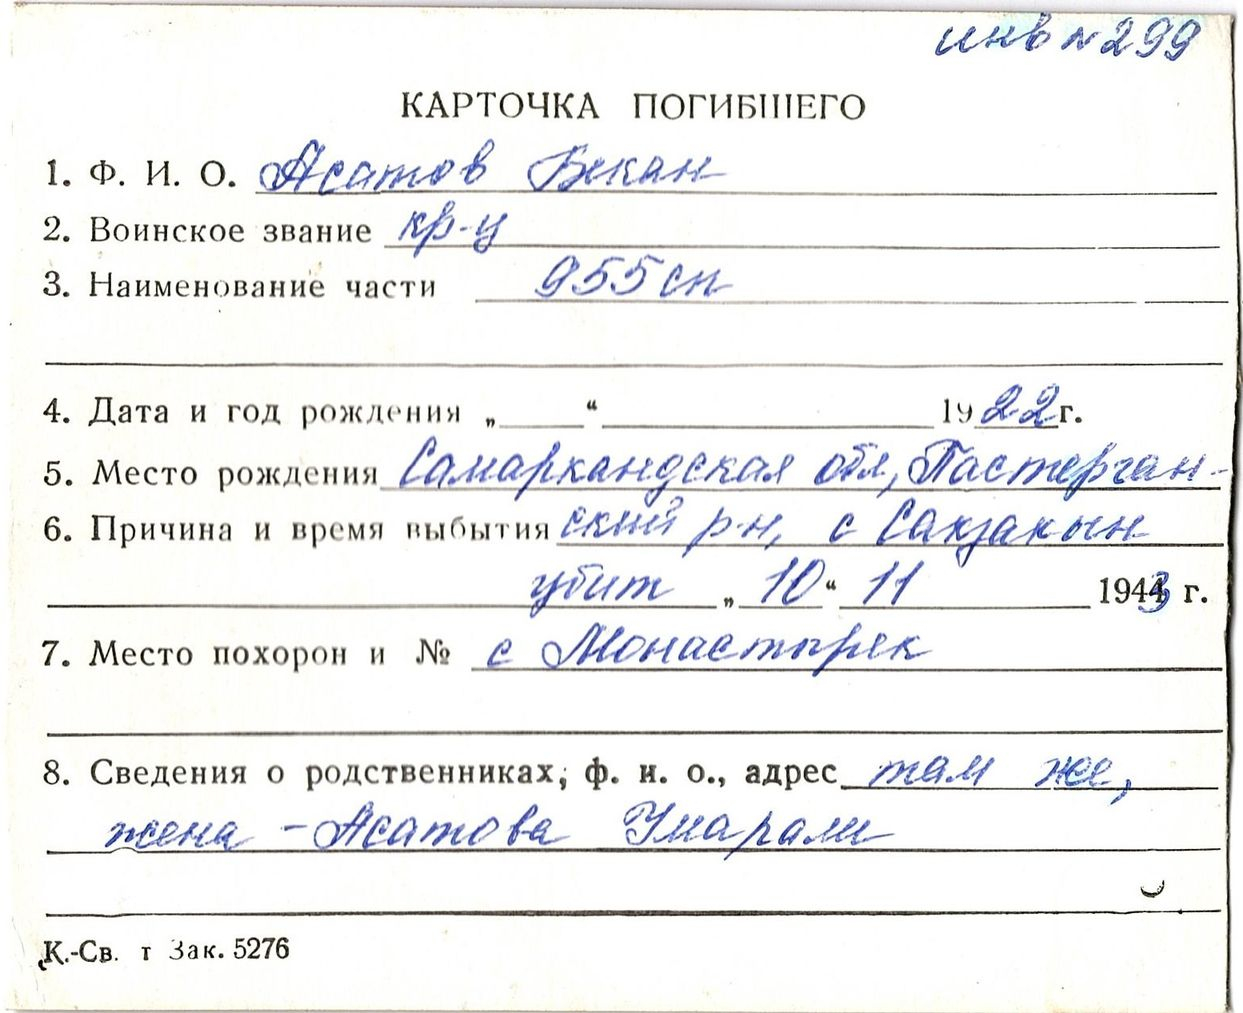 инв № 299
КАРТОЧКА ПОГИБШЕГО
1. Ф. И. О. Асатов Бекан
2. Воинское звание кр-ц
3. Наименование части 955 сп
4. Дата и год рождения „ “ 1922 г.
5. Место рождения Самаркандская обл, Пастерган-
6. Причина и время выбытия ский р-н, с Сакзакын
убит „ 10 “ 11 1943 г.
7. Место похорон и № с Монастырек
8. Сведения о родственниках, ф. и. о., адрес там же,
жена - Асатова Умарали
К.-Св. т Зак. 5276